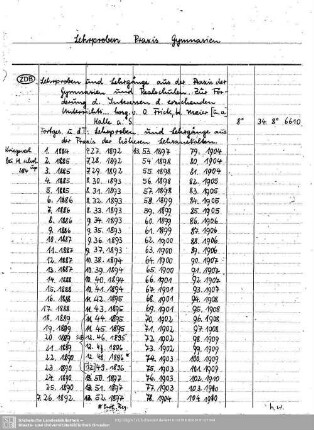 Lehrproben Praxis Gymnasien
ZDB
Lehrproben und Lehrgänge aus der Praxis der
Gymnasien und Realschulen. Zur För-
derung d. Interessen d. erziehenden
Unterrichts. hrsg. v. O. Frick, H. Meier [u.a.]
Halle a. S. 8° 34. 8° 6610
Fortges. u. d. T.: Lehrproben und Lehrgänge aus
der Praxis der höheren Lehranstalten.
1. 1884 27. 1892 53. 1897 79. 1904
2. 1885 28. 1892 54. 1898 80. 1904
3. 1885 29. 1892 55. 1898 81. 1904
4. 1885 30. 1892 56. 1898 82. 1905
5. 1885 31. 1892 57. 1898 83. 1905
6. 1886 32. 1892 58. 1899 84. 1905
7. 1886 33. 1892 59. 1899 85. 1905
8. 1886 34. 1893 60. 1899 86. 1906
9. 1886 35. 1893 61. 1899 87. 1906
10. 1887 36. 1893 62. 1900 88. 1906
11. 1887 37. 1893 63. 1900 89. 1906
12. 1887 38. 1894 64. 1900 90. 1907
13. 1887 39. 1894 65. 1900 91. 1907
14. 1888 40. 1894 66. 1901 92. 1907
15. 1888 41. 1894 67. 1901 93. 1907
16. 1888 42. 1895 68. 1901 94. 1908
17. 1888 43. 1895 69. 1901 95. 1908
18. 1889 44. 1895 70. 1902 96. 1908
19. 1889 45. 1895 71. 1902 97. 1908
20. 1889 46. 1896 72. 1902 98. 1909
21. 1889 47. 1896 73. 1902 99. 1909
22. 1890 48. 1896 74. 1903 100. 1909
23. 1890 49. 1896 75. 1903 101. 1909
24. 1890 50. 1897 76. 1903 102. 1910
25. 1890 51. 1897 77. 1903 103. 1910
26. 1892 52. 1897 78. 1904 104. 1910